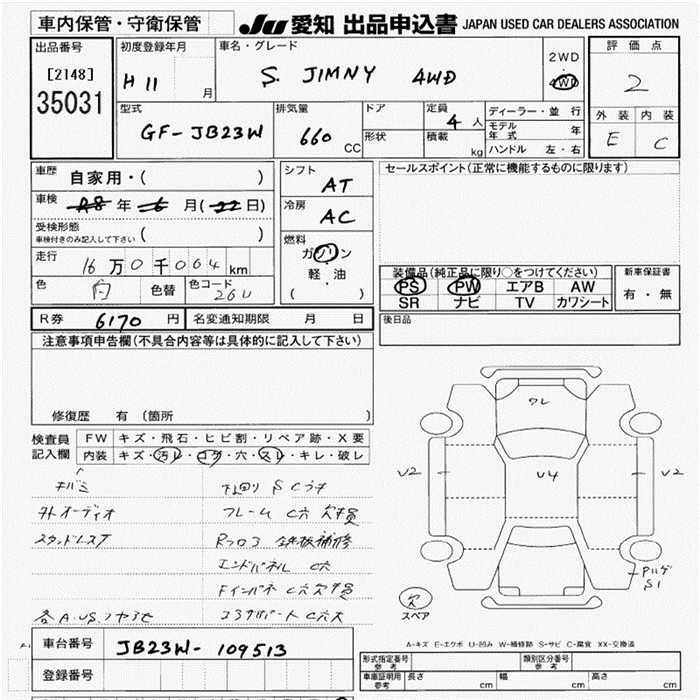 車内保管・守衛保管
JU 愛知 出品申込書 JAPAN USED CAR DEALERS ASSOCIATION
出品番号
[2148]
35031
初度登録年月
H 11 月
車名・グレード
S. JIMNY 4WD
2WD
4WD
評価点
2
外装 内装
E C
型式
GF-JB23W
排気量
660 CC
ドア
形状
定員
4 人
積載
kg
ディーラー・並行
モデル年式 年
ハンドル 左・右
車歴
自家用・( )
車検
A8 年 6 月(22日)
受検形態
車検付きのみ記入して下さい ( )
走行
16万0千064 km
色
白
色替
色コード
26U
シフト
AT
冷房
AC
燃料
ガソリン
・
軽・油
( )
セールスポイント(正常に機能するものに限ります)
装備品(純正品に限り○をつけてください)
PS PW エアB AW
SR ナビ TV カワシート
新車保証書
有・無
R券 6170 円 名変通知期限 月 日
後日品
注意事項申告欄(不具合内容等は具体的に記入して下さい)
修復歴 有 (箇所 )
検査員
記入欄
FW キズ・飛石・ヒビ割・リペア跡・X要
内装 キズ・汚レ・コゲ・穴・スレ・キレ・破レ
下回り SCウキ
外オーディオ フレーム C穴欠損
スタッドレス7 Rフロア 鉄板補修
エンドパネル C穴
Fインパネ C穴欠損
コアサポート C穴大
ワレ
U2
U4
U2
S1
欠
スペア
A-キズ E-エクボ U-凹み W-補修跡 S-サビ C-腐食 XX-交換済
車台番号 JB23W-109513
登録番号
形式指定番号
参考
類別区分番号
参考
車庫証明用
参考
長さ cm 幅 cm 高さ cm